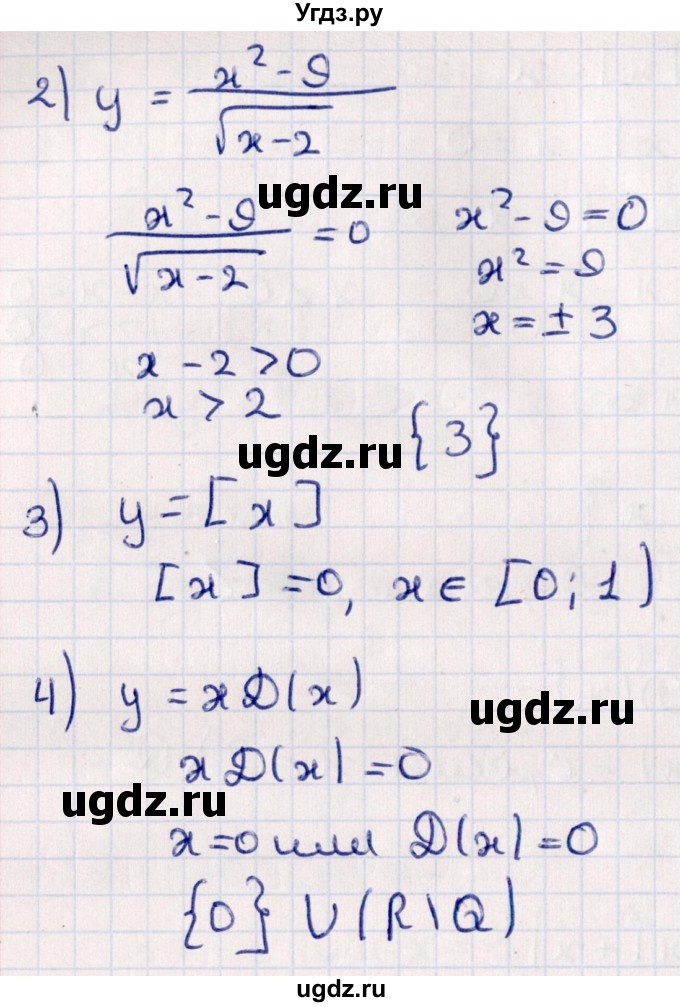 Угдз.ру
2) y = (x² - 9) / √(x - 2)
ugdz.ru
(x² - 9) / √(x - 2) = 0
x² - 9 = 0
x² = 9
x = ± 3
x - 2 > 0
x > 2
ugdz.ru
{3}
3) y = [x]
[x] = 0, x ∈ [0; 1)
4) y = xД(x)
ugdz.ru
xД(x) = 0
ugdz.ru
x = 0 или Д(x) = 0
{0} ∪ (R \ Q)
ugdz.ru